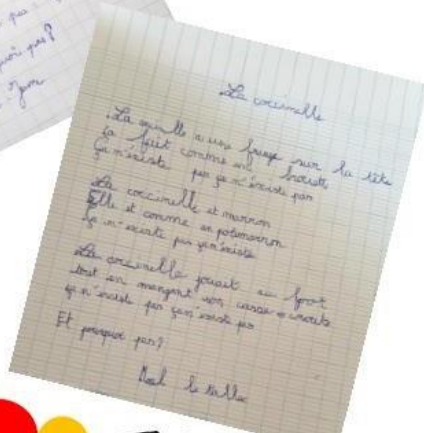 pas
pas?
La coccinelle
La coccinelle a une frange sur la tête
ça fait comme une
ça n'éxiste pas ça n'éxiste pas
La coccinelle et marron
Elle et comme un potimarron
ça n'existe pas ça n'éxiste
La coccinelle jouait au foot
tout en mangant son casse croute
ça n'éxiste pas ça n'éxiste pas
Et pourquoi pas?